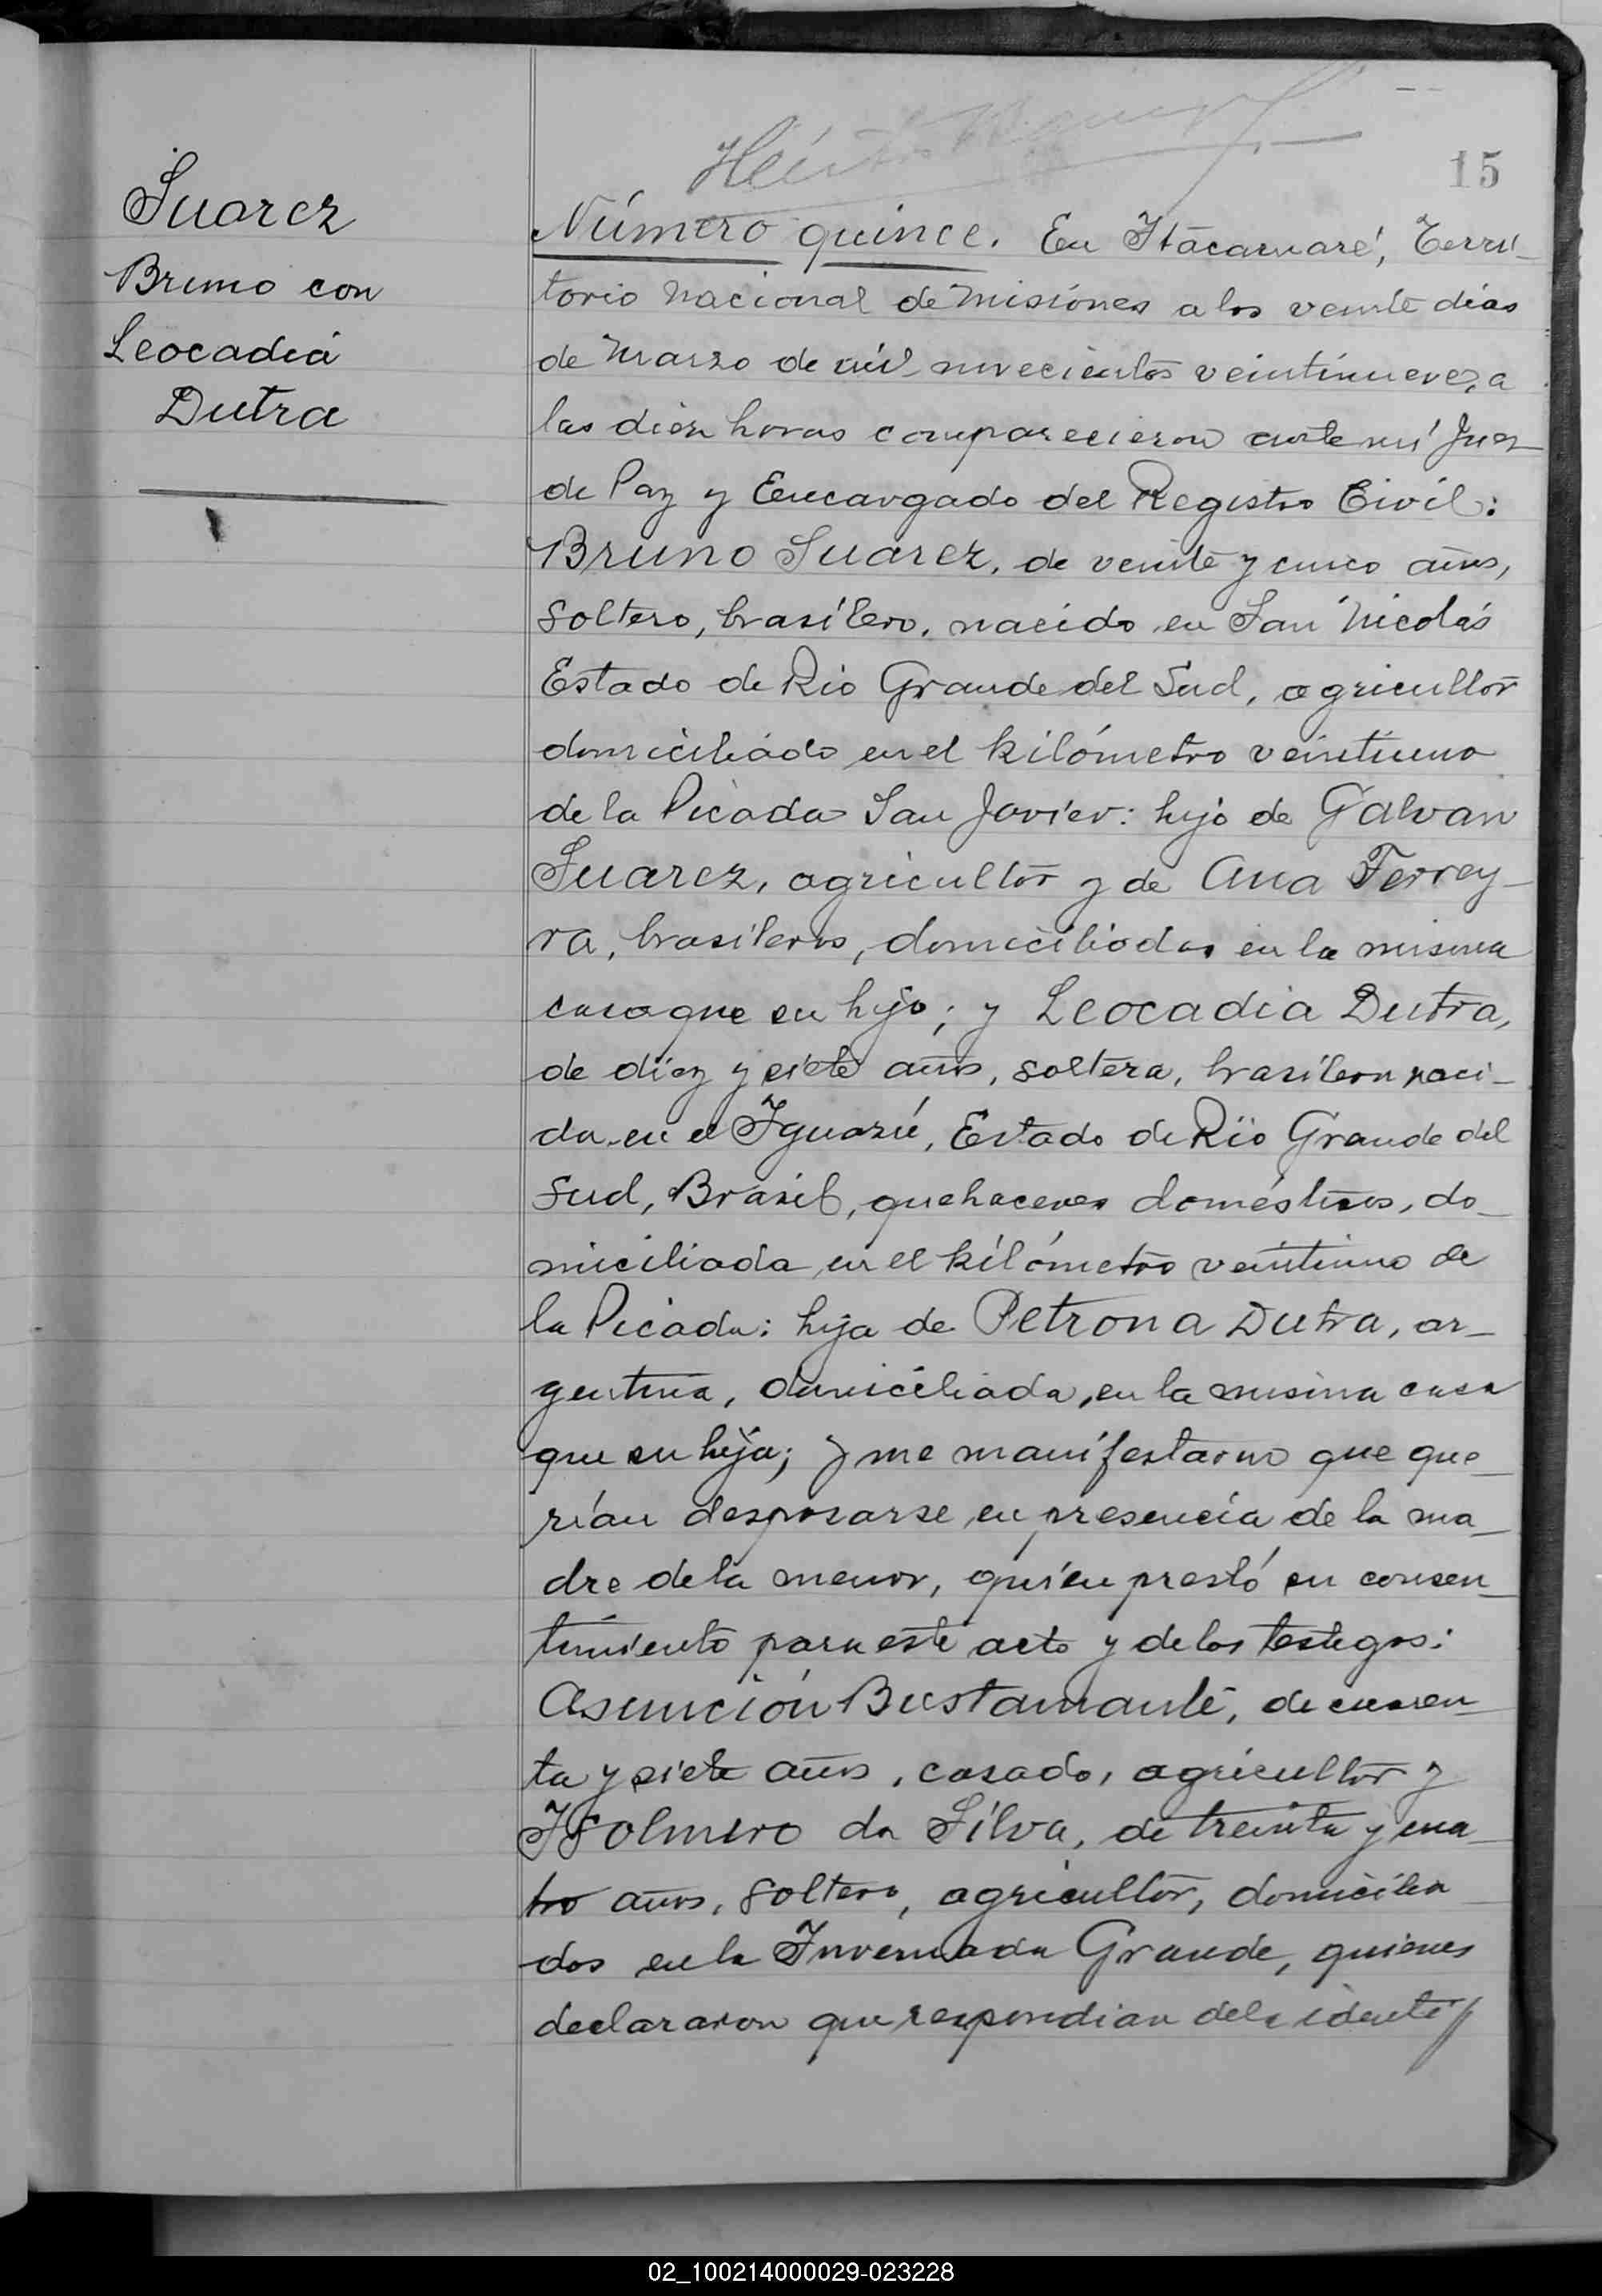 15
Suarez
Bruno con
Leocadia
Dutra
Número quince. En Itacaruaré, Terri-
torio Nacional de Misiones a los veinte días
de Marzo de mil novecientos veintinueve, a
las diez horas comparecieron ante mí Juez
de Paz y Encargado del Registro Civil:
Bruno Suarez, de veinte y cinco años,
soltero, brasilero, nacido en San Nicolás
Estado de Rio Grande del Sud, agricultor
domiciliado en el kilómetro veintiuno
de la Picada San Javier: hijo de Galvan
Suarez, agricultor y de Ana Ferrey-
ra, brasileros, domiciliados en la misma
casa que su hijo; y Leocadia Dutra,
de diez y siete años, soltera, brasilera naci-
da en el Iguazú, Estado de Rio Grande del
Sud, Brasil, quehaceres domésticos, do-
miciliada en el kilómetro veintiuno de
la Picada: hija de Petrona Dutra, ar-
gentina, domiciliada, en la misma casa
que su hija; y me manifestaron que que-
rían desposarse en presencia de la ma-
dre de la menor, quién prestó su consen-
timiento para este acto y de los testigos:
Asunción Bustamante, de cuaren-
ta y siete años, casado, agricultor y
da Silva, de treinta y cua-
tro años, soltero, agricultor, domicilia-
dos en la Invernada Grande, quienes
declararon que respondian de la identi
02_100214000029-023228